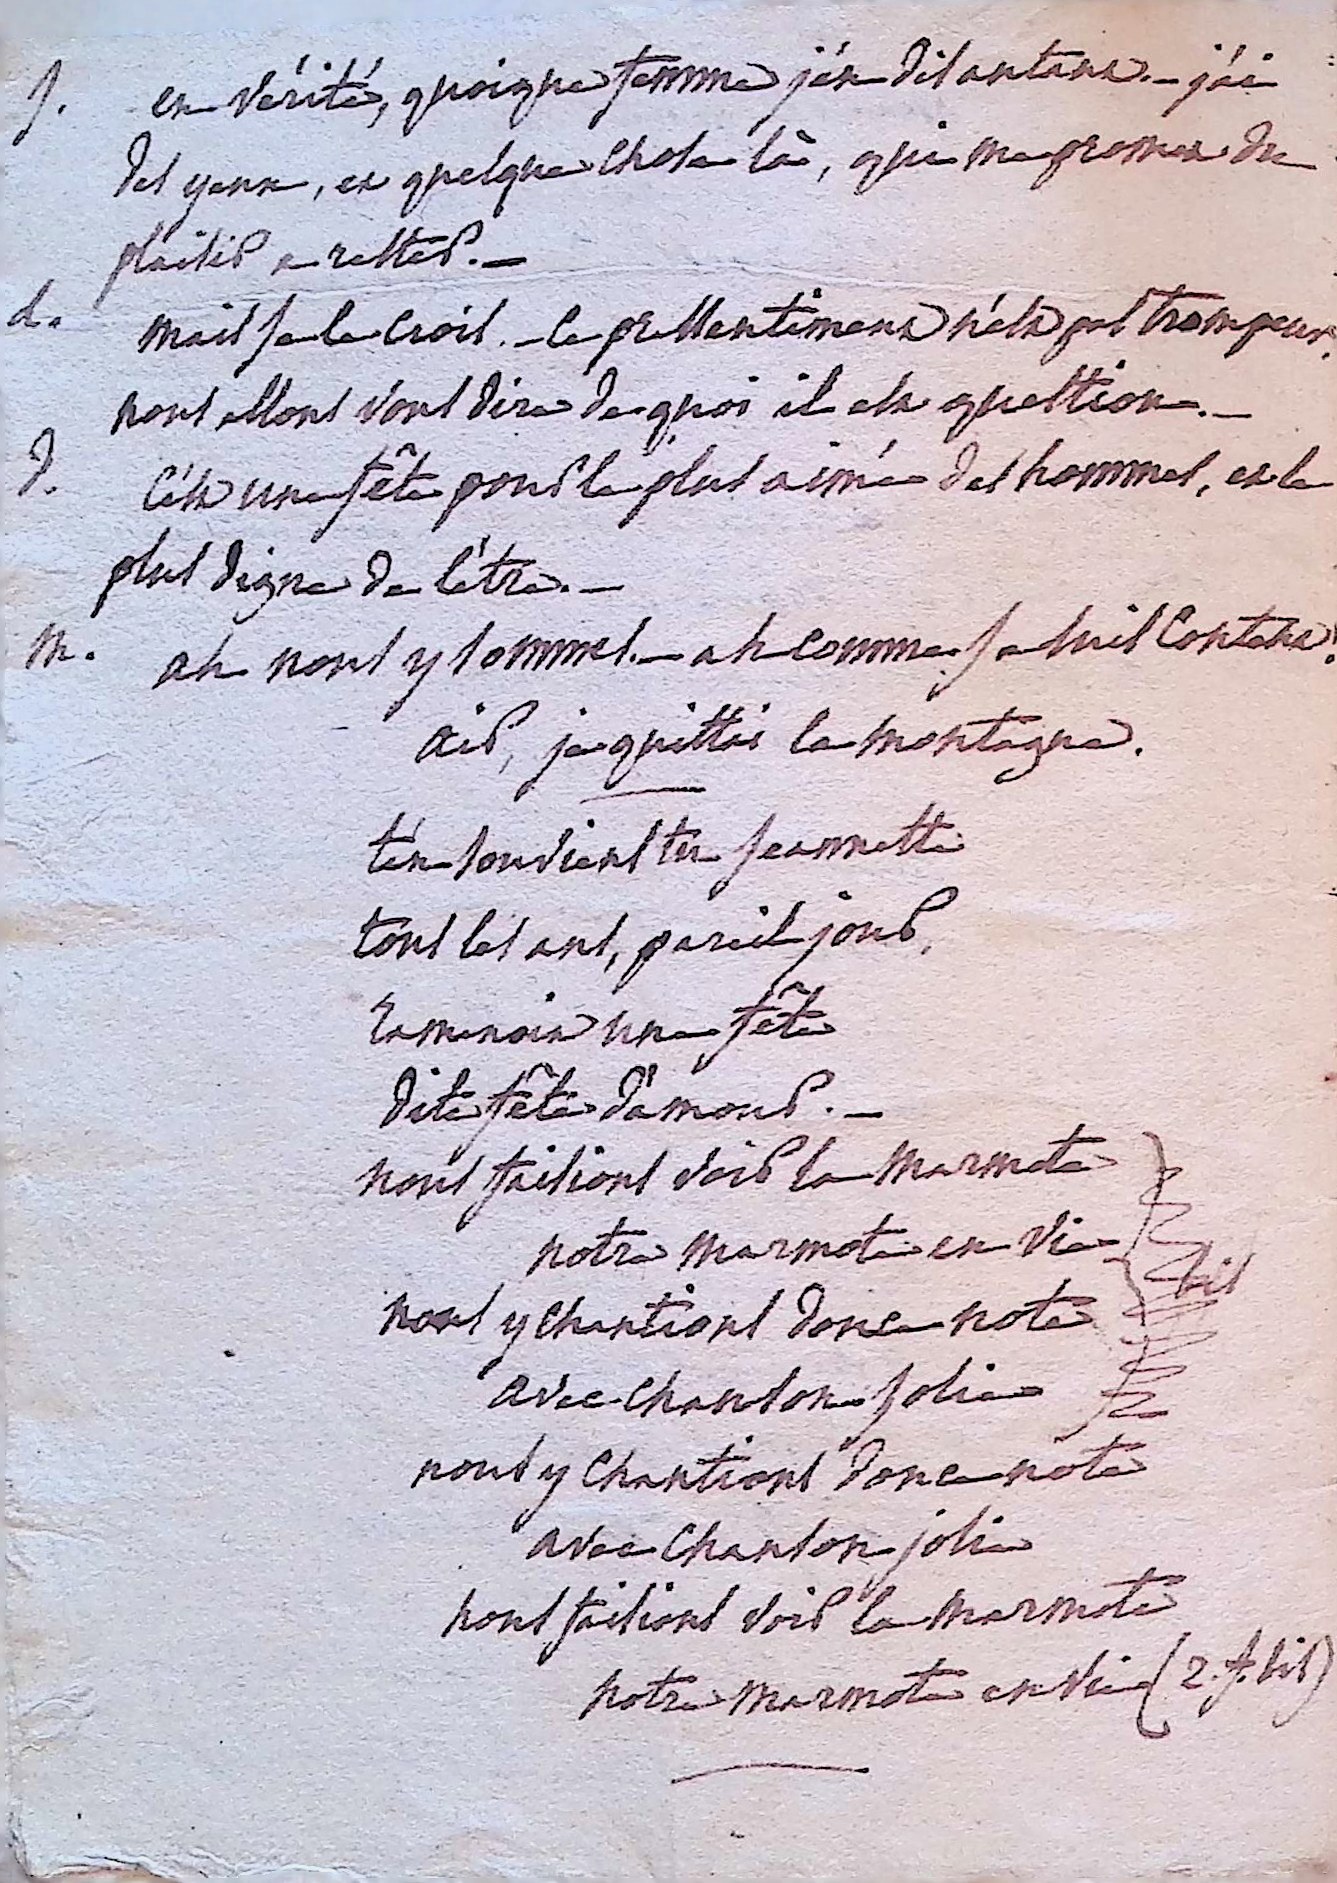 j. en vérité, quoique femme j'en dis autant. - j'ai
des yeux, et quelque chose là, qui me promet du
plaisir a rester. -
d. mais je le crois. - le pressentiment n'est pas trompeur.
nous allons vous dire de quoi il est question. -
d. c'est une fête pour le plus aimé des hommes, et le
plus digne de l'être. -
m. ah nous y sommes. - ah comme je suis content!
air, je quittai la montagne.
t'en souviens tu jeannette
tous les ans, pareil jour,
ramenoit une fête
dite fête d'amour. -
nous faisions voir la marmote
notre marmote en vie
bis
nous y chantions douce note
avec chanson jolie
nous y chantions douce note
avec chanson jolie
nous faisions voir la marmote
notre marmote en vie (2. f. bis)